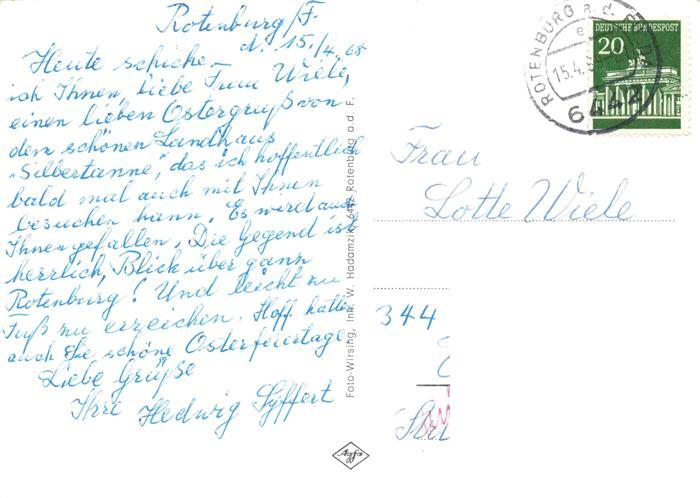 Rotenburg/F.
d. 15./4. 68
Heute schicke
ich Ihnen, liebe Frau Wiele,
einen lieben Ostergruß von
dem schönen Landhaus
"Silbertanne", das ich hoffentlich
bald mal auch mit Ihnen
besuchen kann. Es wird auch
Ihnen gefallen. Die Gegend ist
herrlich, Blick über ganz
Rotenburg! Und leicht zu
Fuß zu erreichen. Hoff. hatten
auch Sie schöne Osterfeiertage
Liebe Grüße
Ihre Hedwig Syffert
Foto-Wirsing, Inh. W. Hadamzik, 6442 Rotenburg a.d. F.
Agfa
ROTENBURG a. d. FULDA
e
15.4.
6442
DEUTSCHE BUNDESPOST
20
Frau
Lotte Wiele
344